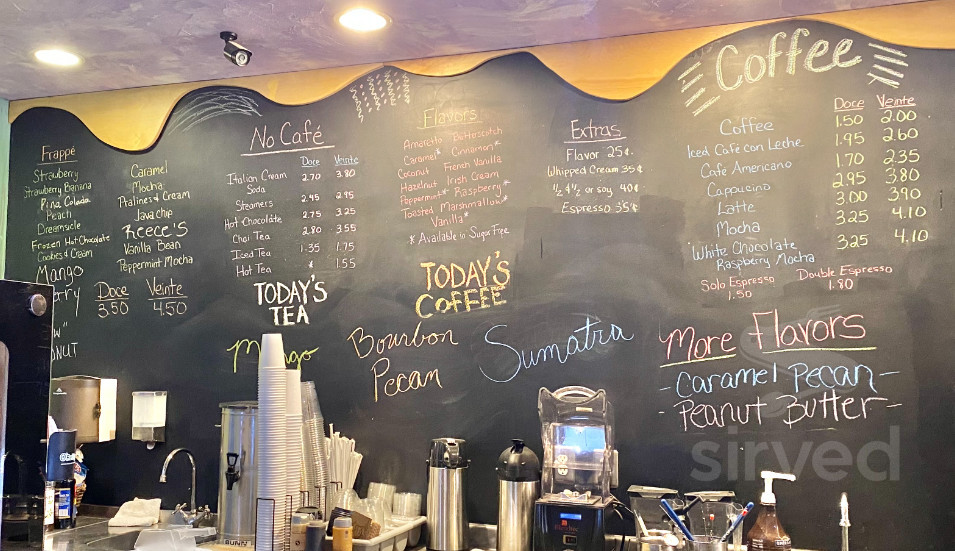 Frappé
Strawberry
Strawberry Banana
Pina Colada
Peach
Dreamsicle
Frozen Hot Chocolate
Cookies & Cream
Mango
Caramel
Mocha
Pralines & Cream
Java chip
REECE'S
Vanilla Bean
Peppermint Mocha
Doce Veinte
3.50 4.50
No Café
Doce Veinte
Italian Cream Soda 2.70 3.80
Steamers 2.45 2.95
Hot Chocolate 2.75 3.25
Chai Tea 2.80 3.55
Iced Tea 1.35 1.75
Hot Tea 1.55
TODAY'S
TEA
Mango
Flavors
Amaretto Butterscotch
Caramel* Cinnamon*
Coconut French Vanilla
Hazelnut Irish Cream
Peppermint* Raspberry*
Toasted Marshmallow*
Vanilla*
* Available in Sugar Free
TODAY'S
COFFEE
Bourbon
Pecan
Sumatra
Extras
Flavor 25¢
Whipped Cream 35¢
½ & ½ or soy 40¢
Espresso 35¢
Coffee
Doce Veinte
Coffee 1.50 2.00
Iced Café con Leche 1.95 2.60
Café Americano 1.70 2.35
Cappucino 2.95 3.80
Latte 3.00 3.90
Mocha 3.25 4.10
White Chocolate
Raspberry Mocha 3.25 4.10
Solo Espresso Double Espresso
1.50 1.80
More Flavors
-Caramel Pecan-
-Peanut Butter-
sirved
BUNN